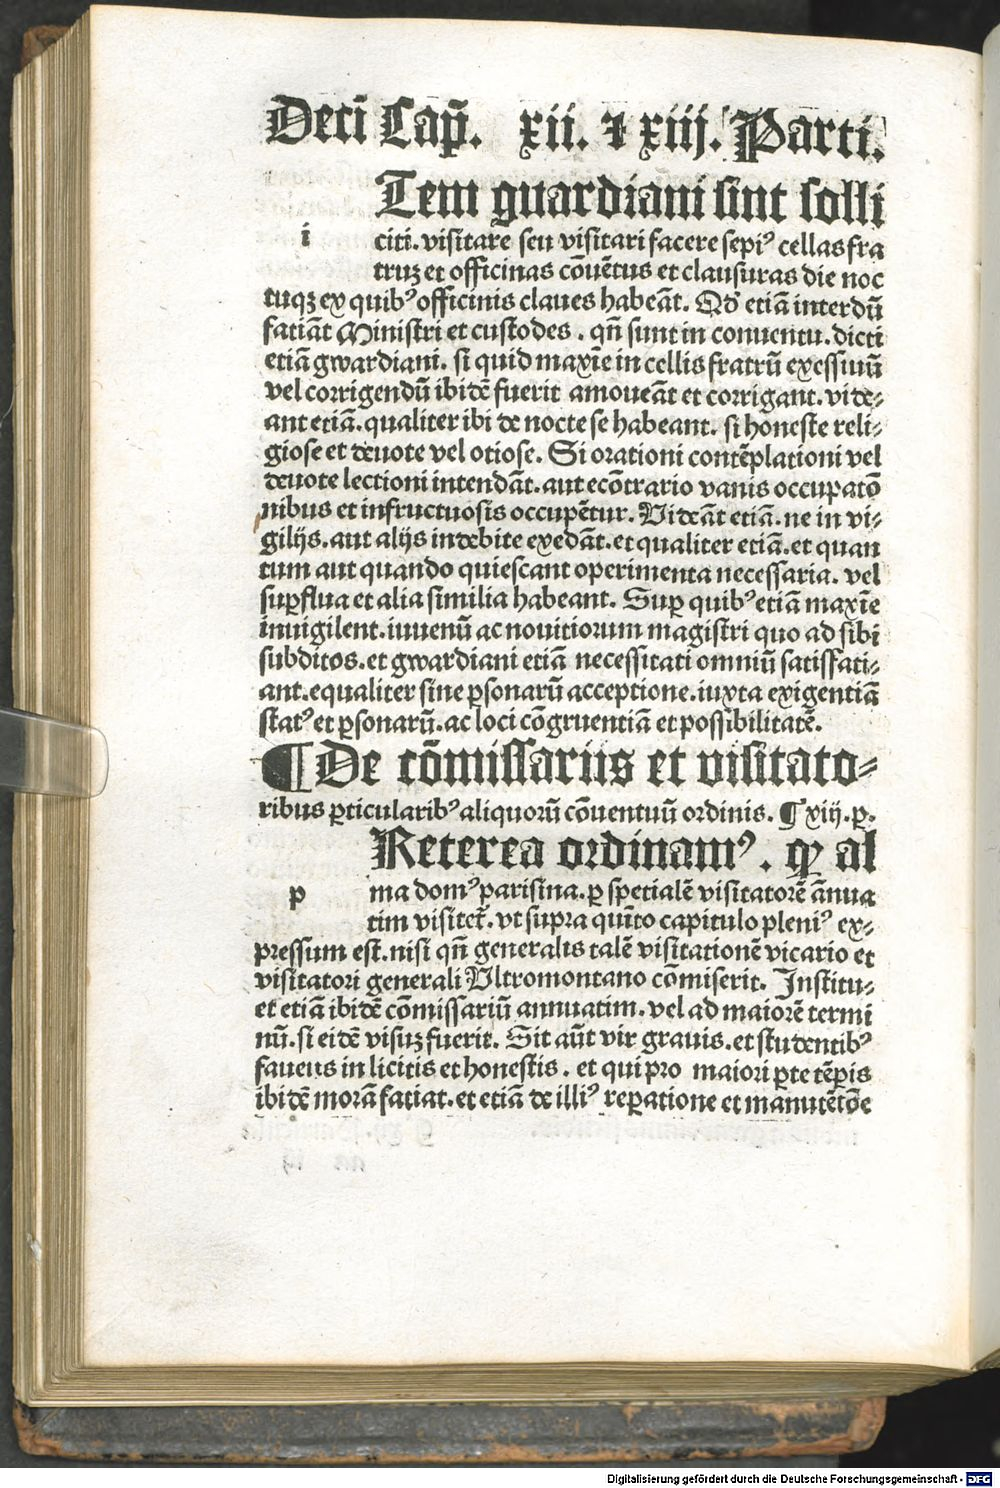 Deci Cap̃. xii. ⁊ xiij. Parti.
Tem guardiani sint solli
i citi. visitare seu visitari facere sepiꝰ cellas fra
truꝫ et officinas cōuētus et clausuras die noc
tuqꝫ ex quibꝰ officinis claues habeāt. Qd̕ etiā interdū
fatiāt Ministri et custodes. qñ sunt in conuentu. dicti
etiā gwardiani. si quid maxīe in cellis fratrū exessiuū
vel corrigendū ibidē fuerit amoueāt et corrigant. vide⸗
ant etiā. qualiter ibi de nocte se habeant. si honeste reli⸗
giose et deuote vel otiose. Si orationi contēplationi vel
deuote lectioni intendāt. aut econtrario vanis occupatō
nibus et infructuosis occupētur. Videāt etiā. ne in vi⸗
gilijs. aut alijs indebite exedāt. et qualiter etiā. et quan
tum aut quando quiescant operimenta necessaria. vel
suꝑflua et alia similia habeant. Suꝑ quibꝰ etiā maxīe
inuigilent. iuuenū ac nouitiorum magistri quo ad sibi
subditos. et gwardiani etiā necessitati omniū satisfati⸗
ant. equaliter sine ꝑsonarū acceptione. iuxta exigentiā
statꝰ et ꝑsonarū. ac loci cōgruentiā et possibilitatē.
¶ De cōmissariis et visitato⸗
ribus ꝑticularibꝰ aliquorū cōuentuū ordinis. ¶ xiij. p.
Reterea ordinamꝰ. ꝙ al
p ma domꝰ parisina. ꝑ spetialē visitatorē ānua
tim visitet̄. vt supra quīto capitulo pleniꝰ ex⸗
pressum est. nisi qñ generalis talē visitationē vicario et
visitatori generali Vltromontano cōmiserit. Institu⸗
et etiā ibidē cōmissariū annuatim. vel ad maiorē termi
nū. si eidē visuꝫ fuerit. Sit aūt vir grauis. et studentibꝰ
faueus in licitis et honestis. et qui pro maiori ꝑte tēpis
ibidē morā fatiat. et etiā de illiꝰ reꝑatione et manutētōe
Digitalisierung gefördert durch die Deutsche Forschungsgemeinschaft - DFG